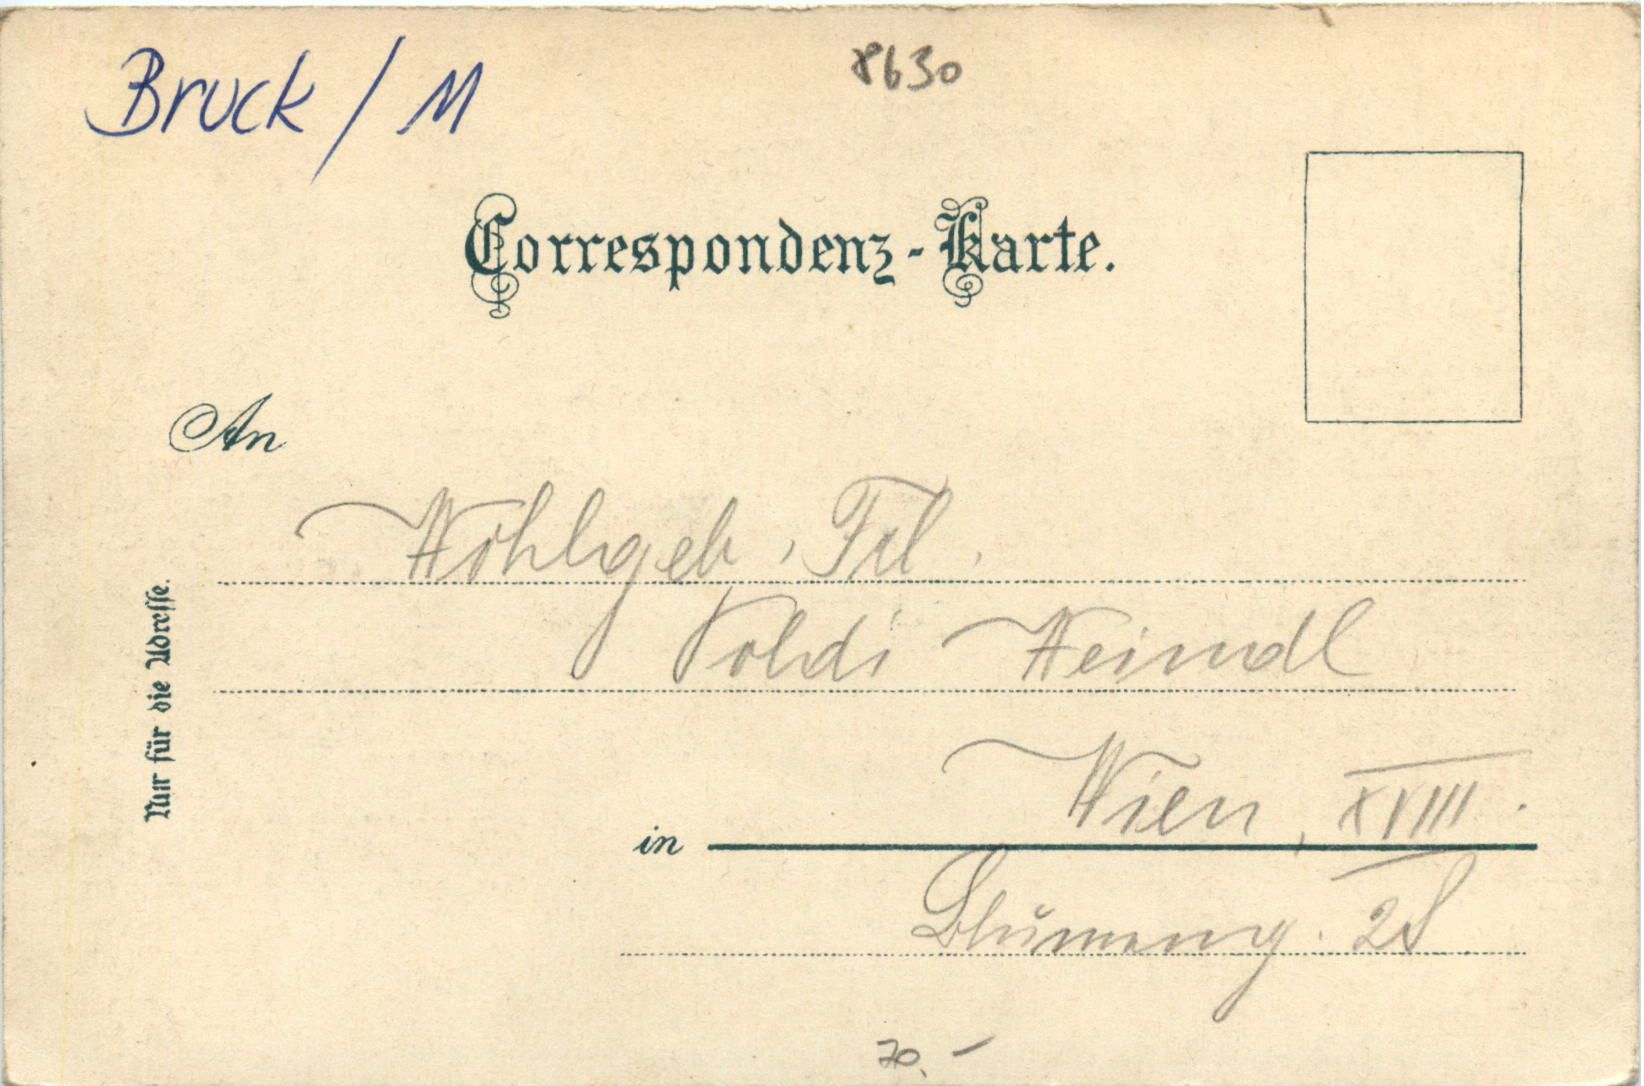 Bruck / M
8630
Correspondenz-Karte.
An
Wohlgeb. Frl.
Poldi Weindl
Nur für die Adresse.
in Wien, XVIII.
Blumeng. 28
70.-